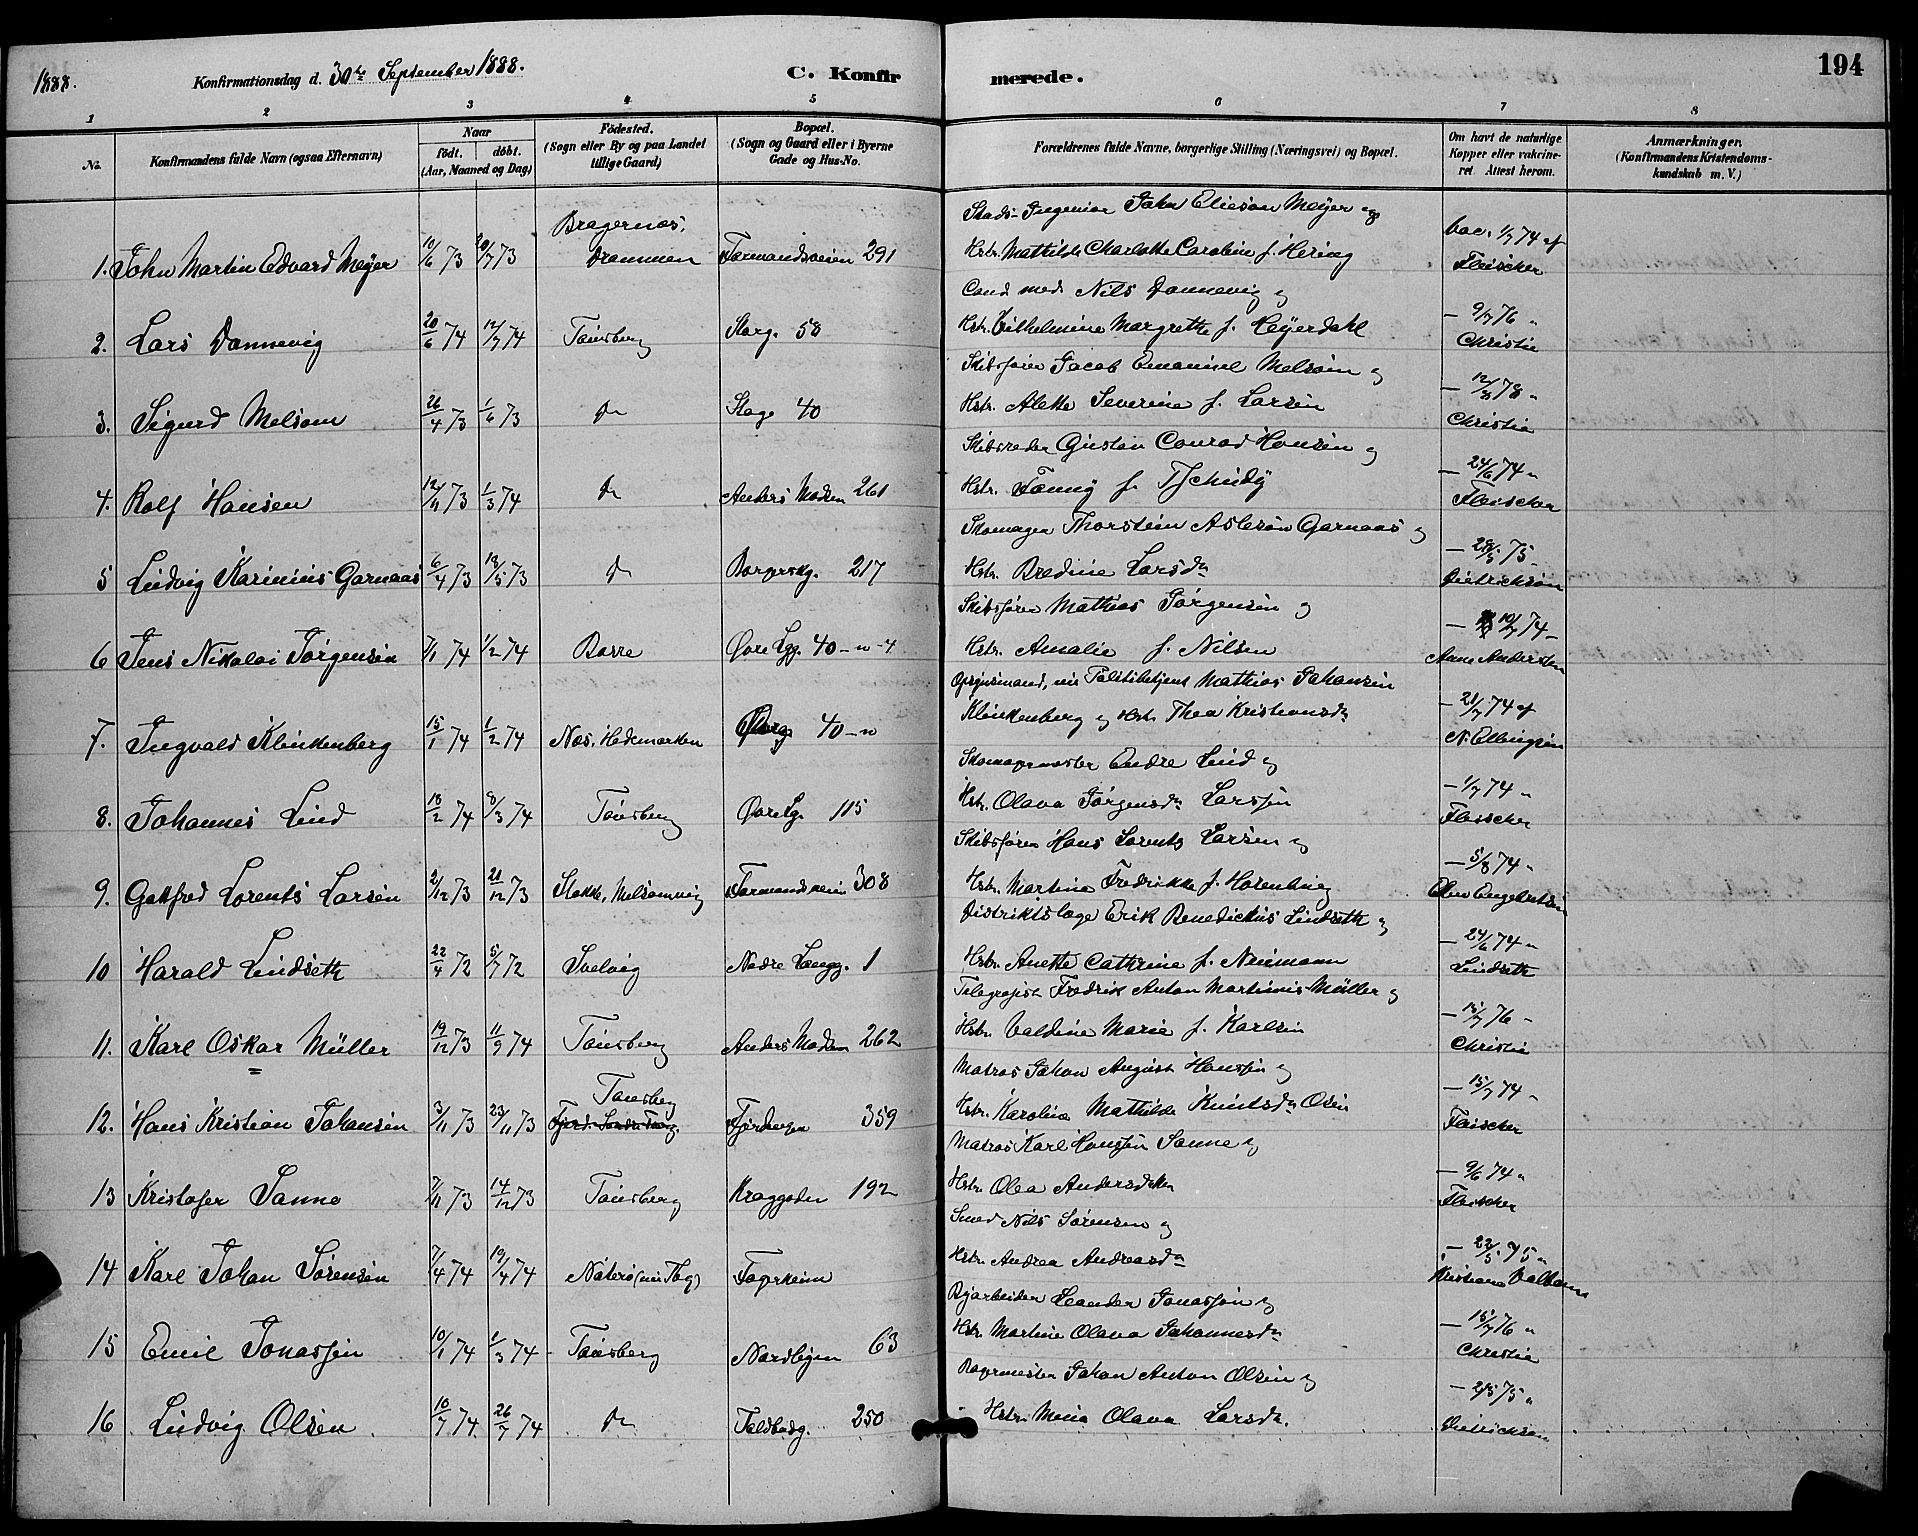 1888.
Konfirmationsdag d. 30te September 1888.
C. Konfirmerede.
194
1 2 3 4 5 6 7 8
No.
Konfirmandens fulde Navn (ogsaa Efternavn)
Naar
født. døbt.
(Aar, Maaned og Dag)
Fødested.
(Sogn eller By og paa Landet tillige Gaard)
Bopæl.
(Sogn og Gaard eller i Byerne Gade og Hus-No.
Forældrenes fulde Navne, borgerlige Stilling (Næringsvei) og Bopæl.
Om havt de naturlige Kopper eller vakcineret Attest herom.
Anmærkninger.
(Konfirmandens Kristendomskundskab m. V.)
1. John Martin Edvard Meyer 10/6 73 20/7 73 Bragernæs, Drammen Farmandsveien 291
Stads-Ingeniør John Elieson Meyer og
Hstr. Mathilde Charlotte Caroline f. Hering
vac. 1/7 74 af Fleischer
2. Lars Dannevig 20/6 74 12/7 74 Tønsberg Storg. 58
Cand med. Nils Dannevig og
Hstr. Vilhelmine Margrethe f. Heyerdahl
— 9/7 76 " Christie
3. Sigurd Melsom 26/4 73 1/6 73 do Storg. 40
Skibsfører Jacob Emanuel Melsom og
Hstr. Alette Severine f. Larsen
— 12/8 78 " Christie
4. Rolf Hansen 12/11 73 1/3 74 do Anders Madsen 261
Skibsreder Gustav Conrad Hansen og
Hstr. Fanny f. Tschudy
— 24/6 74 " Fleischer
5 Ludvig Karinius Garnaas 6/4 73 13/5 73 do Borgerskg. 217
Skomager Thorstein Aslesøn Garnaas og
Hstr. Bredine Larsdr
— 28/5 75 - Dietrichson
6 Jens Nikolai Jørgensen 7/1 74 1/2 74 Borre Øvre Lgg. 40-n-4
Skibsfører Mathias Jørgensen og
Hstr. Amalie f. Nilsen
— 10/7 74 - Anne Andersen
7. Ingvald Klinkenberg 15/1 74 1/2 74 Næs, Hedemarken 40-n
Opsynsmand, nu Politibetjent Mathias Johansen
Klinkenberg og Hstr. Thea Kristiansdr
— 21/7 74 af N. Ellingsen
8. Johannes Lind 18/2 74 8/3 74 Tønsberg Øvre Lg. 115
Skomagermester Andre Lind og
Hstr. Olava Jørgensdr Larssen
— 1/7 74 " Fleischer
9. Gotfred Lorents Larsen 2/12 73 21/12 73 Stokke, Melsomvig Farmandsveien 308
Skibsfører Hans Lorents Larsen og
Hstr. Martine Fredrikke f.
— 5/8 74 " Engebretsen
10 Harald Lindseth 22/4 72 5/7 72 Svelvig Nedre Langg. 1
Distriktslæge Erik Benedictus Lindseth og
Hstr. Anette Cathrine f. Neumann
— 24/6 74 " Lindseth
11. Karl Oskar Müller 19/12 73 11/9 74 Tønsberg Anders Madsen 262
Telegrafist Fredrik Anton Martinius Müller og
Hstr. Valdine Marie f. Karlsen
— 15/7 76 - Christie
12. Hans Kristian Johansen 3/11 73 23/11 73 Tønsberg Fjordvegen 359
Matros Johan August Hanssen og
Hstr. Karoline Mathilde Knutsdr Olsen
— 15/7 74 " Fleischer
13 Kristofer Sanne 7/11 73 14/12 73 Tønsberg Kraggaden 192
Matros Karl Hanssen Sanne og
Hstr. Olea Andersdatter
— 9/6 74 " Fleischer
14 Karl Johan Sørensen 7/4 74 19/4 74 Nøterø (nu Tbg) Fagerheim
Smed Nils Sørensen og
Hstr. Andrea Andreasdr
— 22/5 75 " Kristiane
15 Emil Jonassen 10/1 74 1/3 74 - Tønsberg Nordbyen 63
Byarbeider Leander Jonassen og
Hstr. Martine Olava Johannesdr
— 15/7 76 " Christie
16 Ludvig Olsen 10/7 74 26/7 74 do Toldbodg. 250
Bagermester Johan Anton Olsen og
Hstr. Mina Olava Larsdr.
— 2/5 75 " Dietrichsen